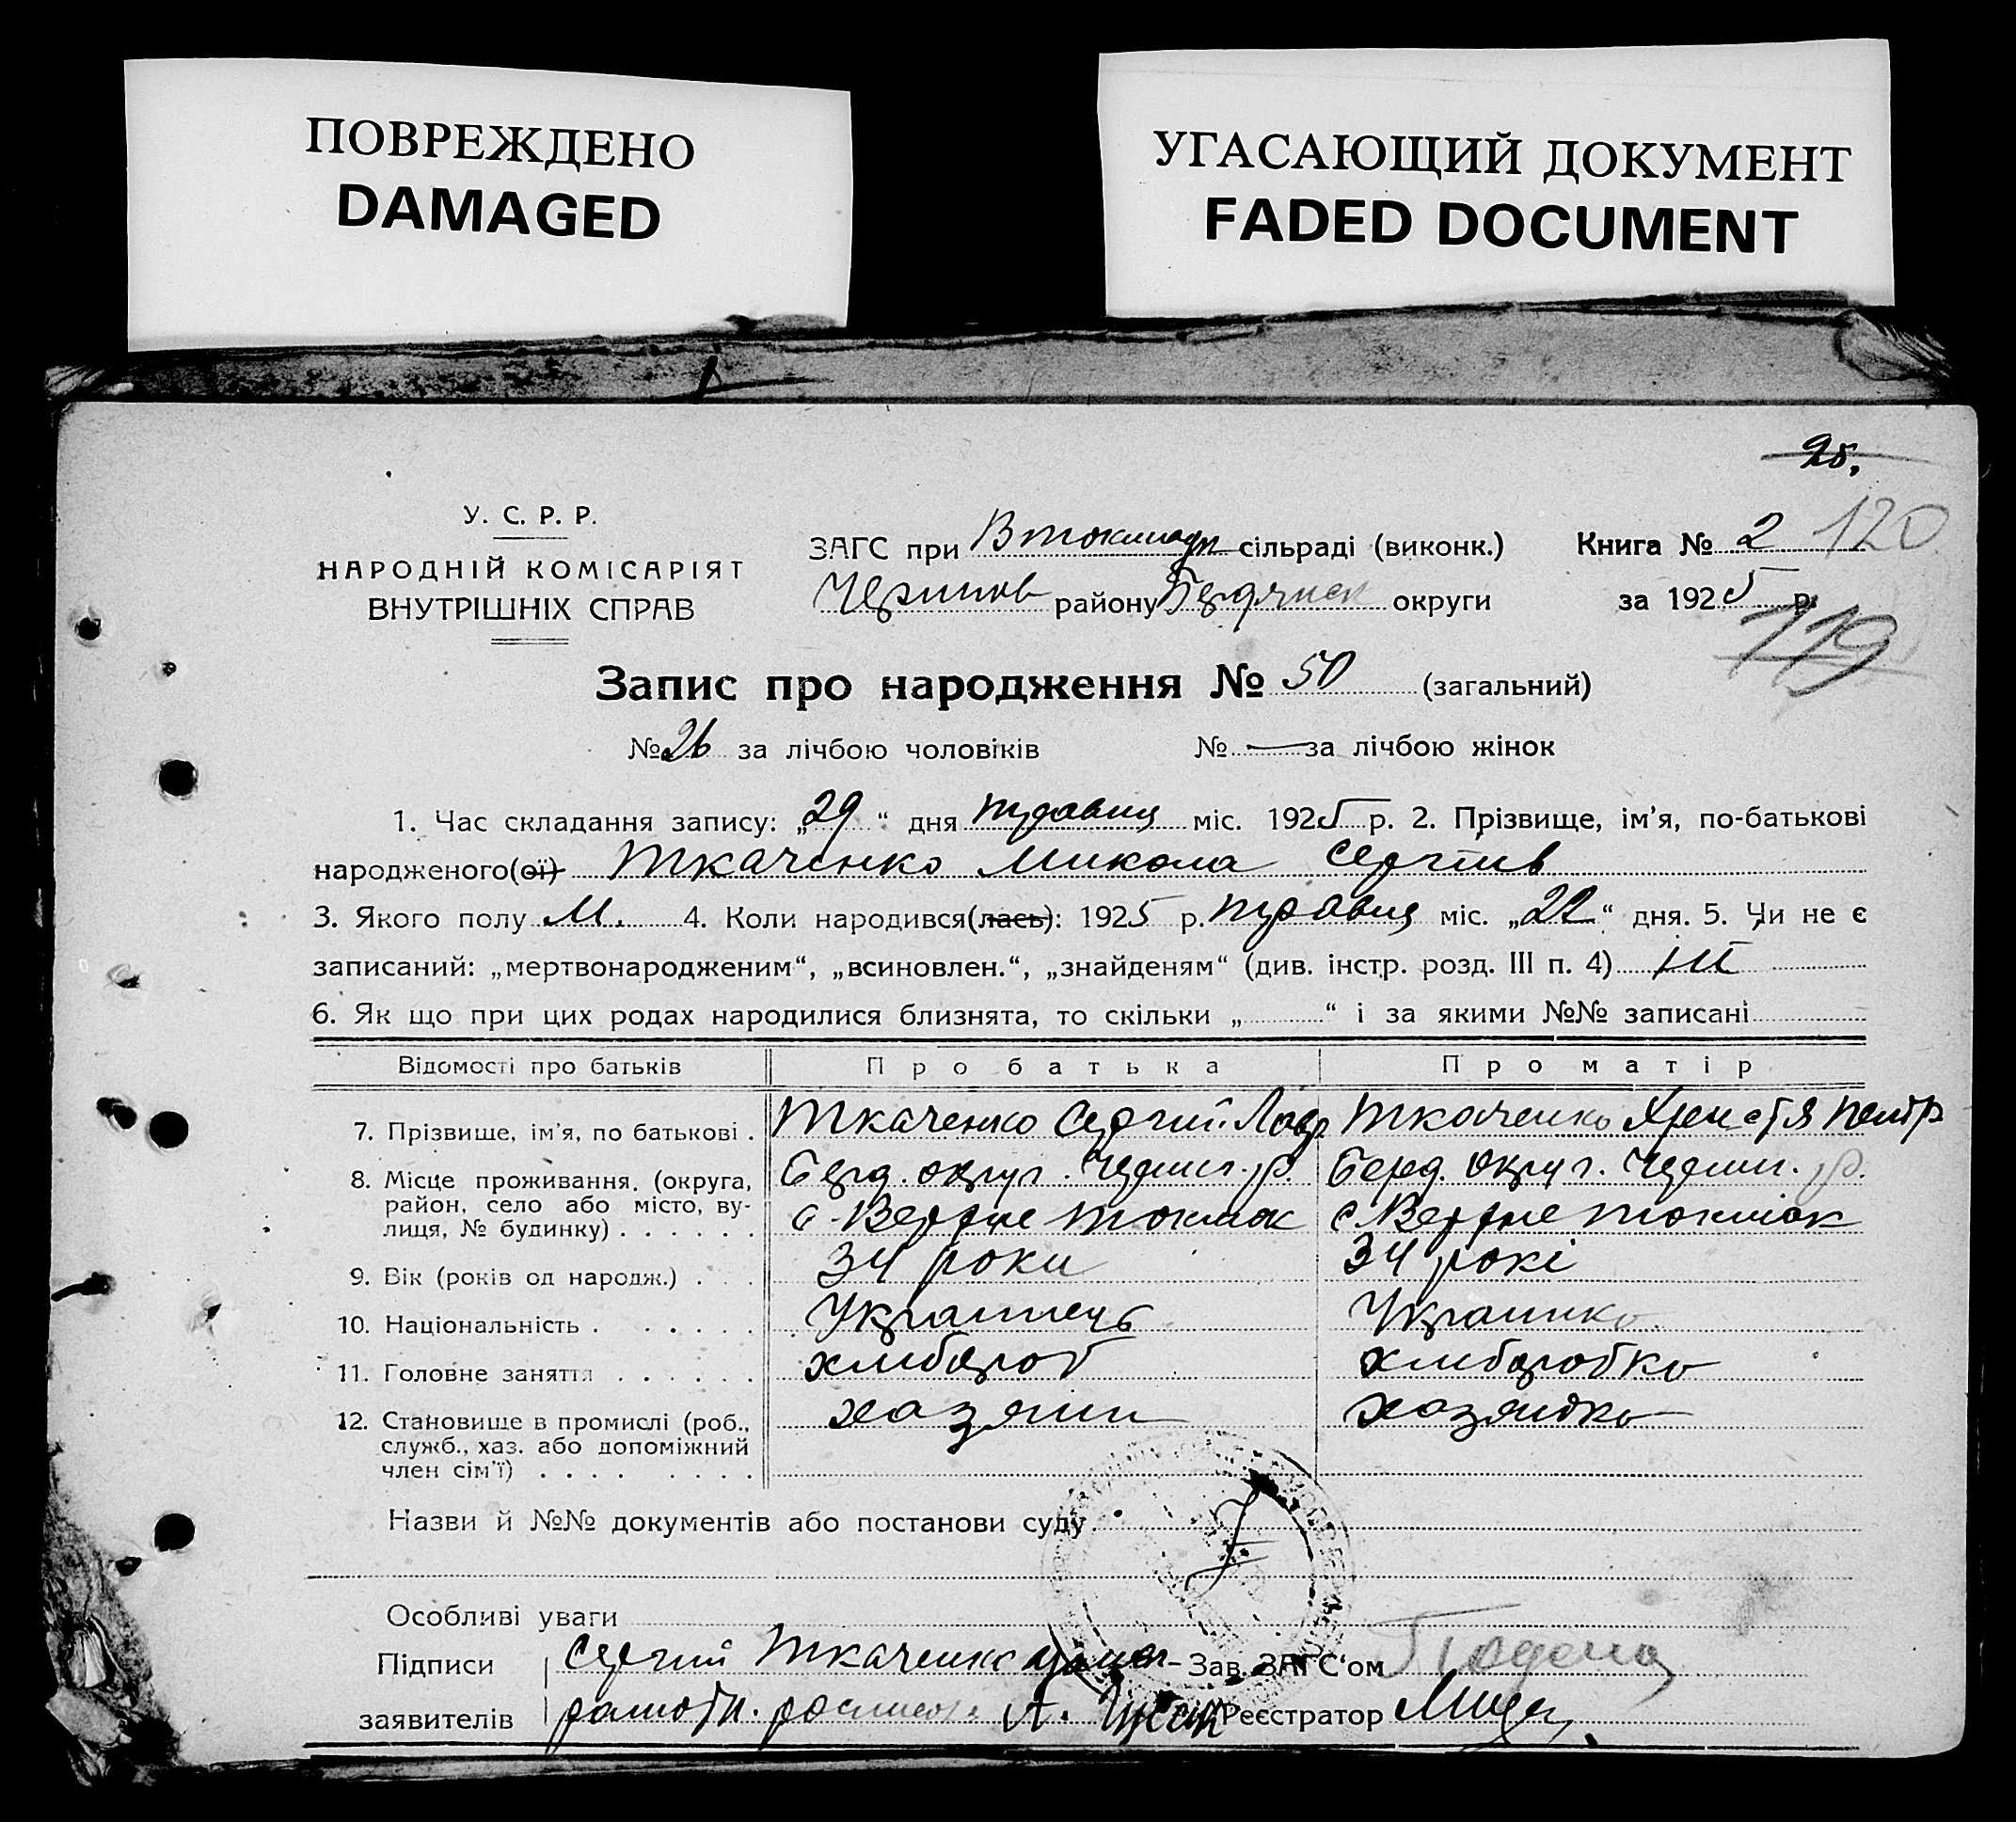 ПОВРЕЖДЕНО
DAMAGED
УГАСАЮЩИЙ ДОКУМЕНТ
FADED DOCUMENT
25.
У. С. Р. Р.
НАРОДНІЙ КОМІСАРІЯТ
ВНУТРІШНІХ СПРАВ
ЗАГС при Втокмацк сільраді (виконк.)
Черниів району Бердянск округи
Книга № 2 120
за 1925 р.
119
Запис про народження № 50 (загальний)
№ 26 за лічбою чоловіків № — за лічбою жінок
1. Час складання запису: „29“ дня травня міс. 1925 р. 2. Прізвище, ім'я, по-батькові
народженого(ої) Ткаченко Микола Сергіів
3. Якого полу М. 4. Коли народився(лась): 1925 р. травня міс. „22“ дня. 5. Чи не є
записаний: „мертвонародженим“, „всиновлен.“, „знайденям“ (див. інстр. розд. III п. 4)
6. Як що при цих родах народилися близнята, то скільки „ “ і за якими №№ записані
Відомості про батьків Про батька Про матір
7. Прізвище, ім'я, по батькові . Ткаченко Сергий Лавр Ткаченко Хренстя Петр
8. Місце проживання. (округа, район, село або місто, вулиця, № будинку) Берд. округ. Черниг. р. Берд. округ. Черниг. р.
с. Верхне Токмак с. Верхне Токмак
9. Вік (років од народж.) 34 роки 34 рокі
10. Національність . Украинець Украинка
11. Головне заняття хлибороб хлиборобка
12. Становище в промислі (роб., служб., хаз. або допоміжний член сім'ї) хазяин хазяйка
Назви й №№ документів або постанови суду
Особливі уваги
Підписи Сергий Ткаченко Зав. ЗАГС'ом
заявителів А. Реєстратор